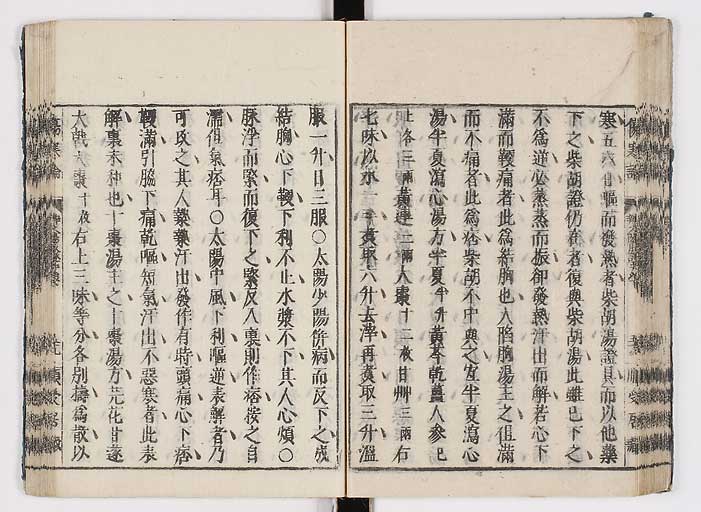 寒五六日嘔而發熱者柴胡湯證具而以他藥
下之柴胡證仍在者復與柴胡湯此雖已下之
不爲逆必蒸蒸而振却發熱汗出而解若心下
滿而鞕痛者此爲結胸也大陷胸湯主之但滿
而不痛者此爲痞柴胡不中與之宜半夏瀉心
湯半夏瀉心湯方半夏半升黃芩乾薑人參已
上各三兩黃連一兩大棗十二枚甘艸三兩右
七味以水一斗煑取六升去滓再煑取三升溫
服一升日三服〇太陽少陽併病而反下之成
結胸心下鞕下利不止水漿不下其人心煩〇
脉浮而緊而復下之緊反入裏則作痞按之自
濡但氣痞耳〇太陽中風下利嘔逆表解者乃
可攻之其人漐漐汗出發作有時頭痛心下痞
鞕滿引脇下痛乾嘔短氣汗出不惡寒者此表
解裏未和也十棗湯主之十棗湯方芫花甘遂
大戟大棗十枚右上三味等分各別擣爲散以
傷寒論